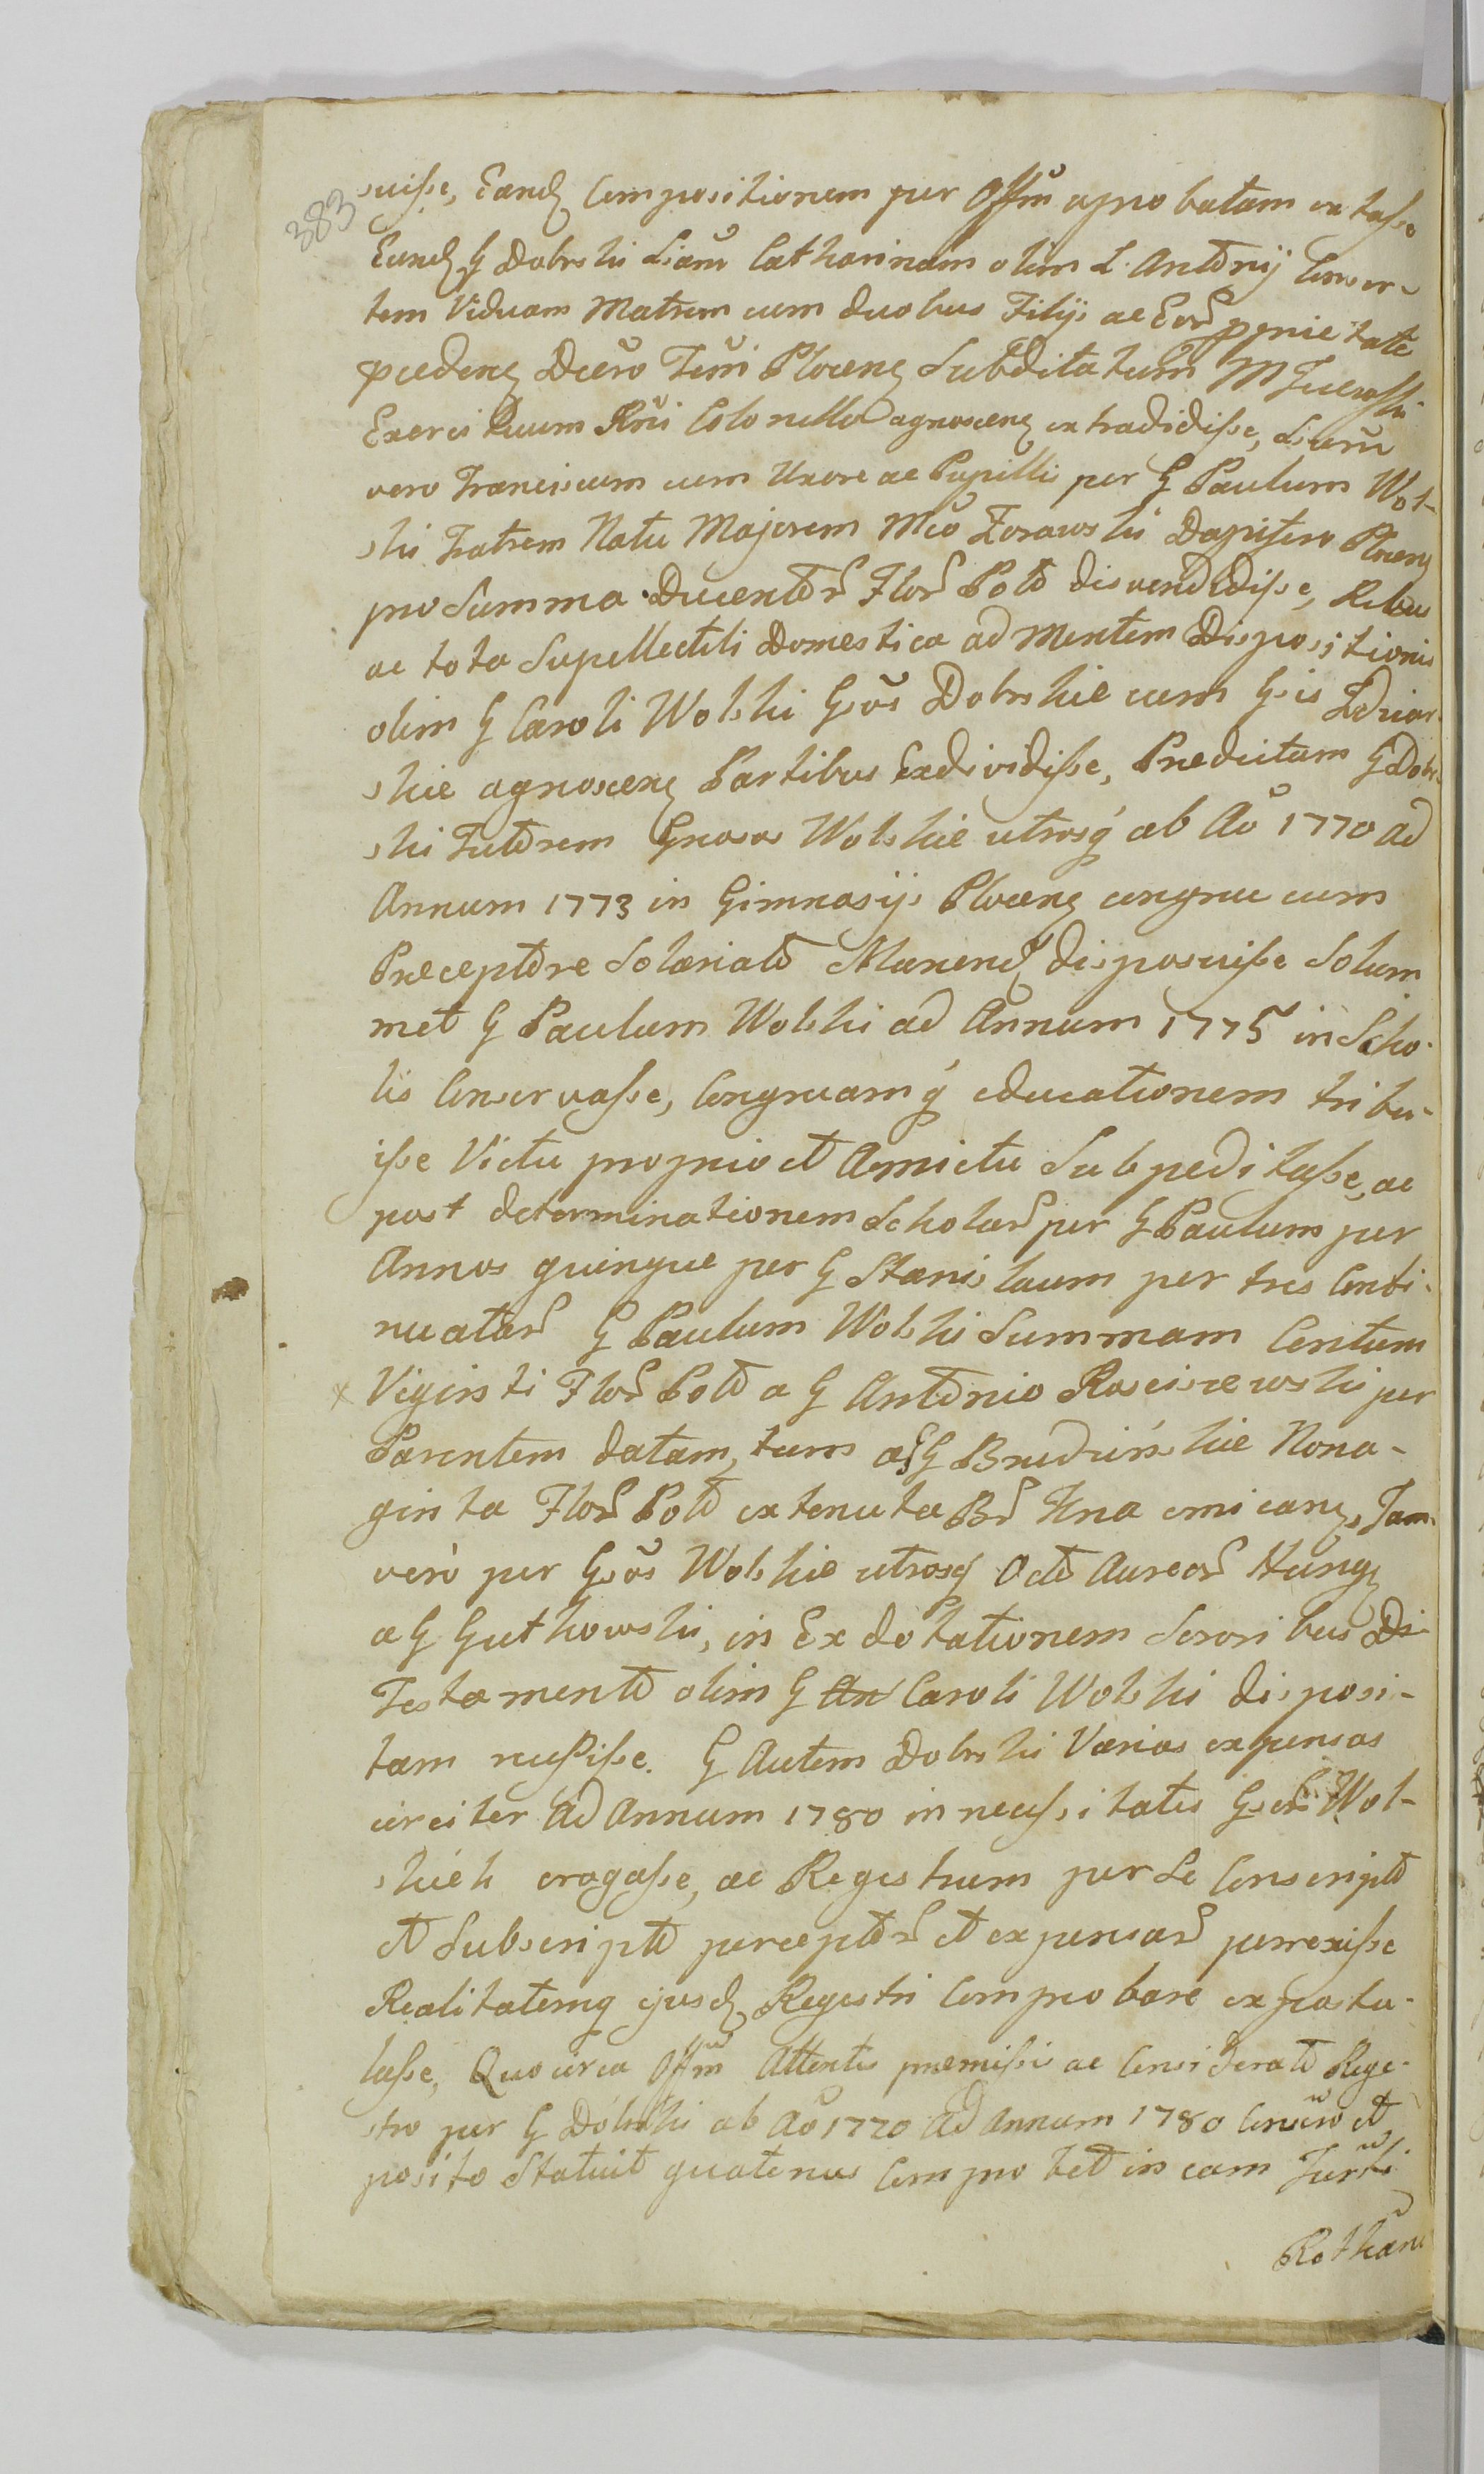 383
suisse, Eand Compositionem per Offm approbatam extasse
Eund G Dobrski L Catharinam olim L. Antonij Consor-
tem Viduam Matrem cum duobus Filijs ac Eor pprietate
Terri Plocen Subditatum M
Exercituum Rni Colonello agnoscen extradidisse,
vero Franciscum cum Uxore ac Pupillis per G Paulum Wol-
ski Fratrem Natu Majorem Mco Zorawski Dapifero Plocen
pro Summa Ducentor Flor Pol disvendidisse, Rebus
ac tota Supellectili Domestica ad mentem Dispositionis
olim G Caroli Wolski Gsos Dobrskie cum Gsis
skie agnoscen Partibus Exdividisse, Predictum G Dobr-
ski Tutorem Gnosos Wolskie utrosq ab Ao 1770 ad
Annum 1773 in Gimnasijs Plocen congrue cum
Preceptore Solariato Manend disposuisse Solum
met G Paulum Wolski ad Annum 1775 in Scho-
lis Conservasse, Congruamq educationem tribu-
isse Victu proprio et Amictu Subpeditasse, ac
post determinationem Scholar per G Paulum per
Annos quinque per G Stanislaum per tres Conti-
nuatar G Paulum Wolski Summam Centum
x Viginti Flor Pol a G Antonio Rosciszewski per
Parentem datam, tum a G Brudzińskie Nona-
ginta Flor Pol ex tenuta Br Hna emican, Jam
verò per Gsos Wolskie utrosq Octo Aureor Hung
a G Gutkowski, in Exdotationem Sororibus Di-
Testamento olim G Caroli Wolski disposi-
tam recepisse. G Autem Dobrski Varias expensas
circiter Ad Annum 1780 in necessitates Gsor Wol-
skich erogasse, ac Registrum per Se Conscripto
et Subscripto perceptor et expensar porrexisse
Realitatemq ejusd Regestri Comprobare expostu-
lasse, Quocirca Offm Attentis premissis ac Considerato Rege-
stro per G Dobrski ab Ao 1770 Ad Annum 1780 et
posito Statuit quatenus Comprobet in eam Jurti
Rotham